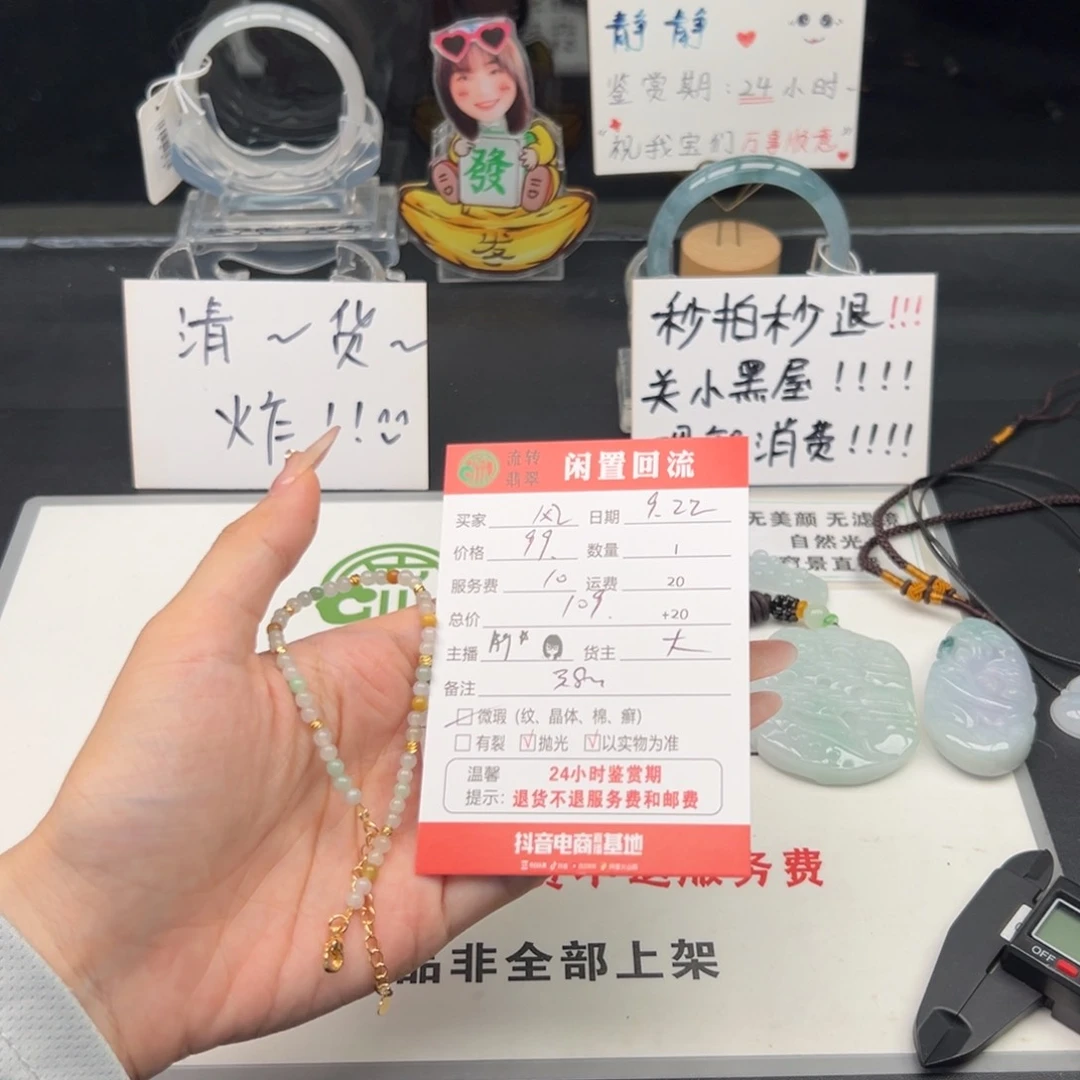 静静
鉴赏期：24小时~
"祝我宝们万事顺意"
發
发
清~货~
炸!!
秒拍秒退!!!
关小黑屋!!!!
消费!!!!
流转翡翠 闲置回流
买家 日期 9.22
价格 99. 数量 1
服务费 10 运费 20
总价 109. +20
主播 货主 大
备注
微瑕 (纹、晶体、棉、癣)
有裂 抛光 以实物为准
温馨提示: 24小时鉴赏期
退货不退服务费和邮费
抖音电商 基地
无美颜 无滤镜
自然光
服务费
品非全部上架
OFF